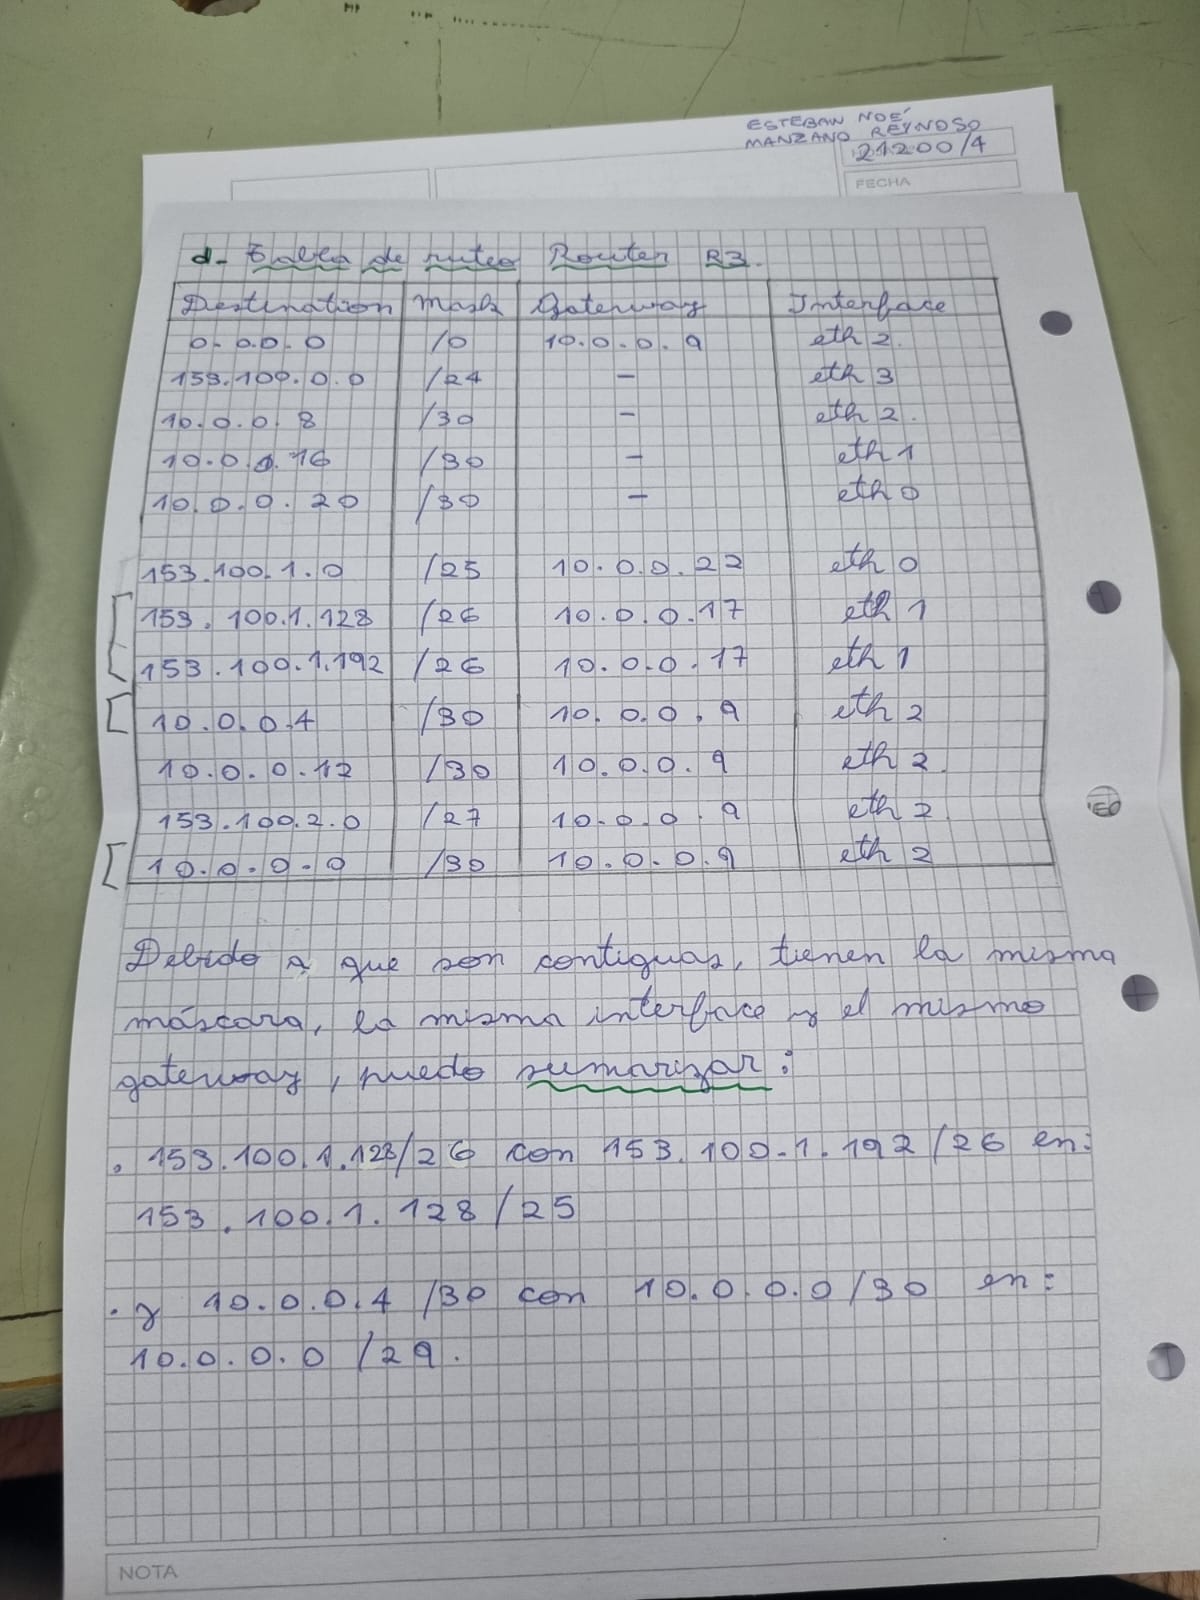 ESTEBAN NOÉ
MANZANO REYNOSO
21200/4
FECHA
d- Tabla de ruteo Router R3.
Destination Mask Gateway Interface
0.0.0.0 /0 10.0.0.9 eth 2.
153.100.0.0 /24 - eth 3
10.0.0.8 /30 - eth 2.
10.0.0.16 /30 - eth 1
10.0.0.20 /30 - eth 0
153.100.1.0 /25 10.0.0.22 eth 0
153.100.1.128 /26 10.0.0.17 eth 1
153.100.1.192 /26 10.0.0.17 eth 1
10.0.0.4 /30 10.0.0.9 eth 2
10.0.0.12 /30 10.0.0.9 eth 2.
153.100.2.0 /27 10.0.0.9 eth 2
10.0.0.0 /30 10.0.0.9 eth 2
Debido a que son contiguas, tienen la misma
máscara, la misma interface y el mismo
gateway, puedo sumarizar:
. 153.100.1.128/26 con 153.100.1.192/26 en:
153.100.1.128/25
. y 10.0.0.4/30 con 10.0.0.0/30 en:
10.0.0.0/29.
NOTA